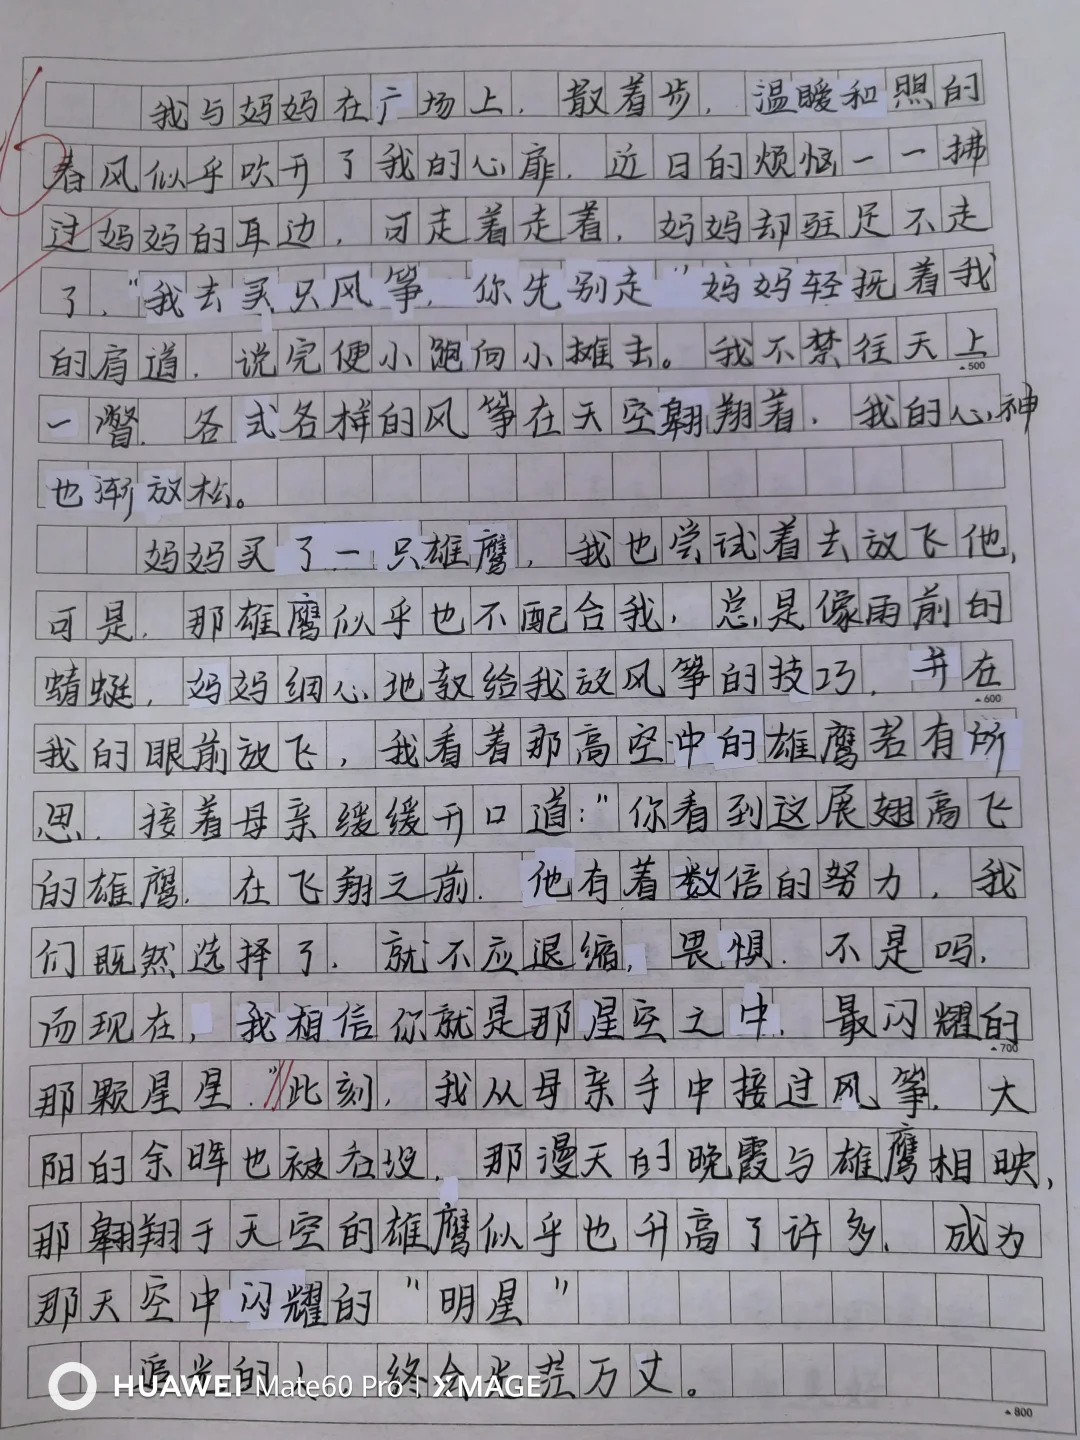 我与妈妈在广场上，散着步，温暖和煦的
春风似乎吹开了我的心扉，近日的烦恼一一拂
过妈妈的耳边，可走着走着，妈妈却驻足不走
了，“我去买只风筝，你先别走”妈妈轻抚着我
的肩道，说完便小跑向小摊去。我不禁往天上
▲500
一瞥，各式各样的风筝在天空翱翔着，我的心神
也渐放松。
妈妈买了一只雄鹰，我也尝试着去放飞他，
可是，那雄鹰似乎也不配合我，总是像雨前的
蜻蜓，妈妈细心地教给我放风筝的技巧，并在
▲600
我的眼前放飞，我看着那高空中的雄鹰若有所
思，接着母亲缓缓开口道：“你看到这展翅高飞
的雄鹰，在飞翔之前，他有着数倍的努力，我
们既然选择了，就不应退缩，畏惧，不是吗，
而现在，我相信你就是那星空之中，最闪耀的
▲700
那颗星星。”此刻，我从母亲手中接过风筝，大
阳的余晖也被吞没，那漫天的晚霞与雄鹰相映，
那翱翔于天空的雄鹰似乎也升高了许多，成为
那天空中闪耀的“明星”
追光的人，终会光茫万丈。
▲800
HUAWEI Mate60 Pro | XMAGE